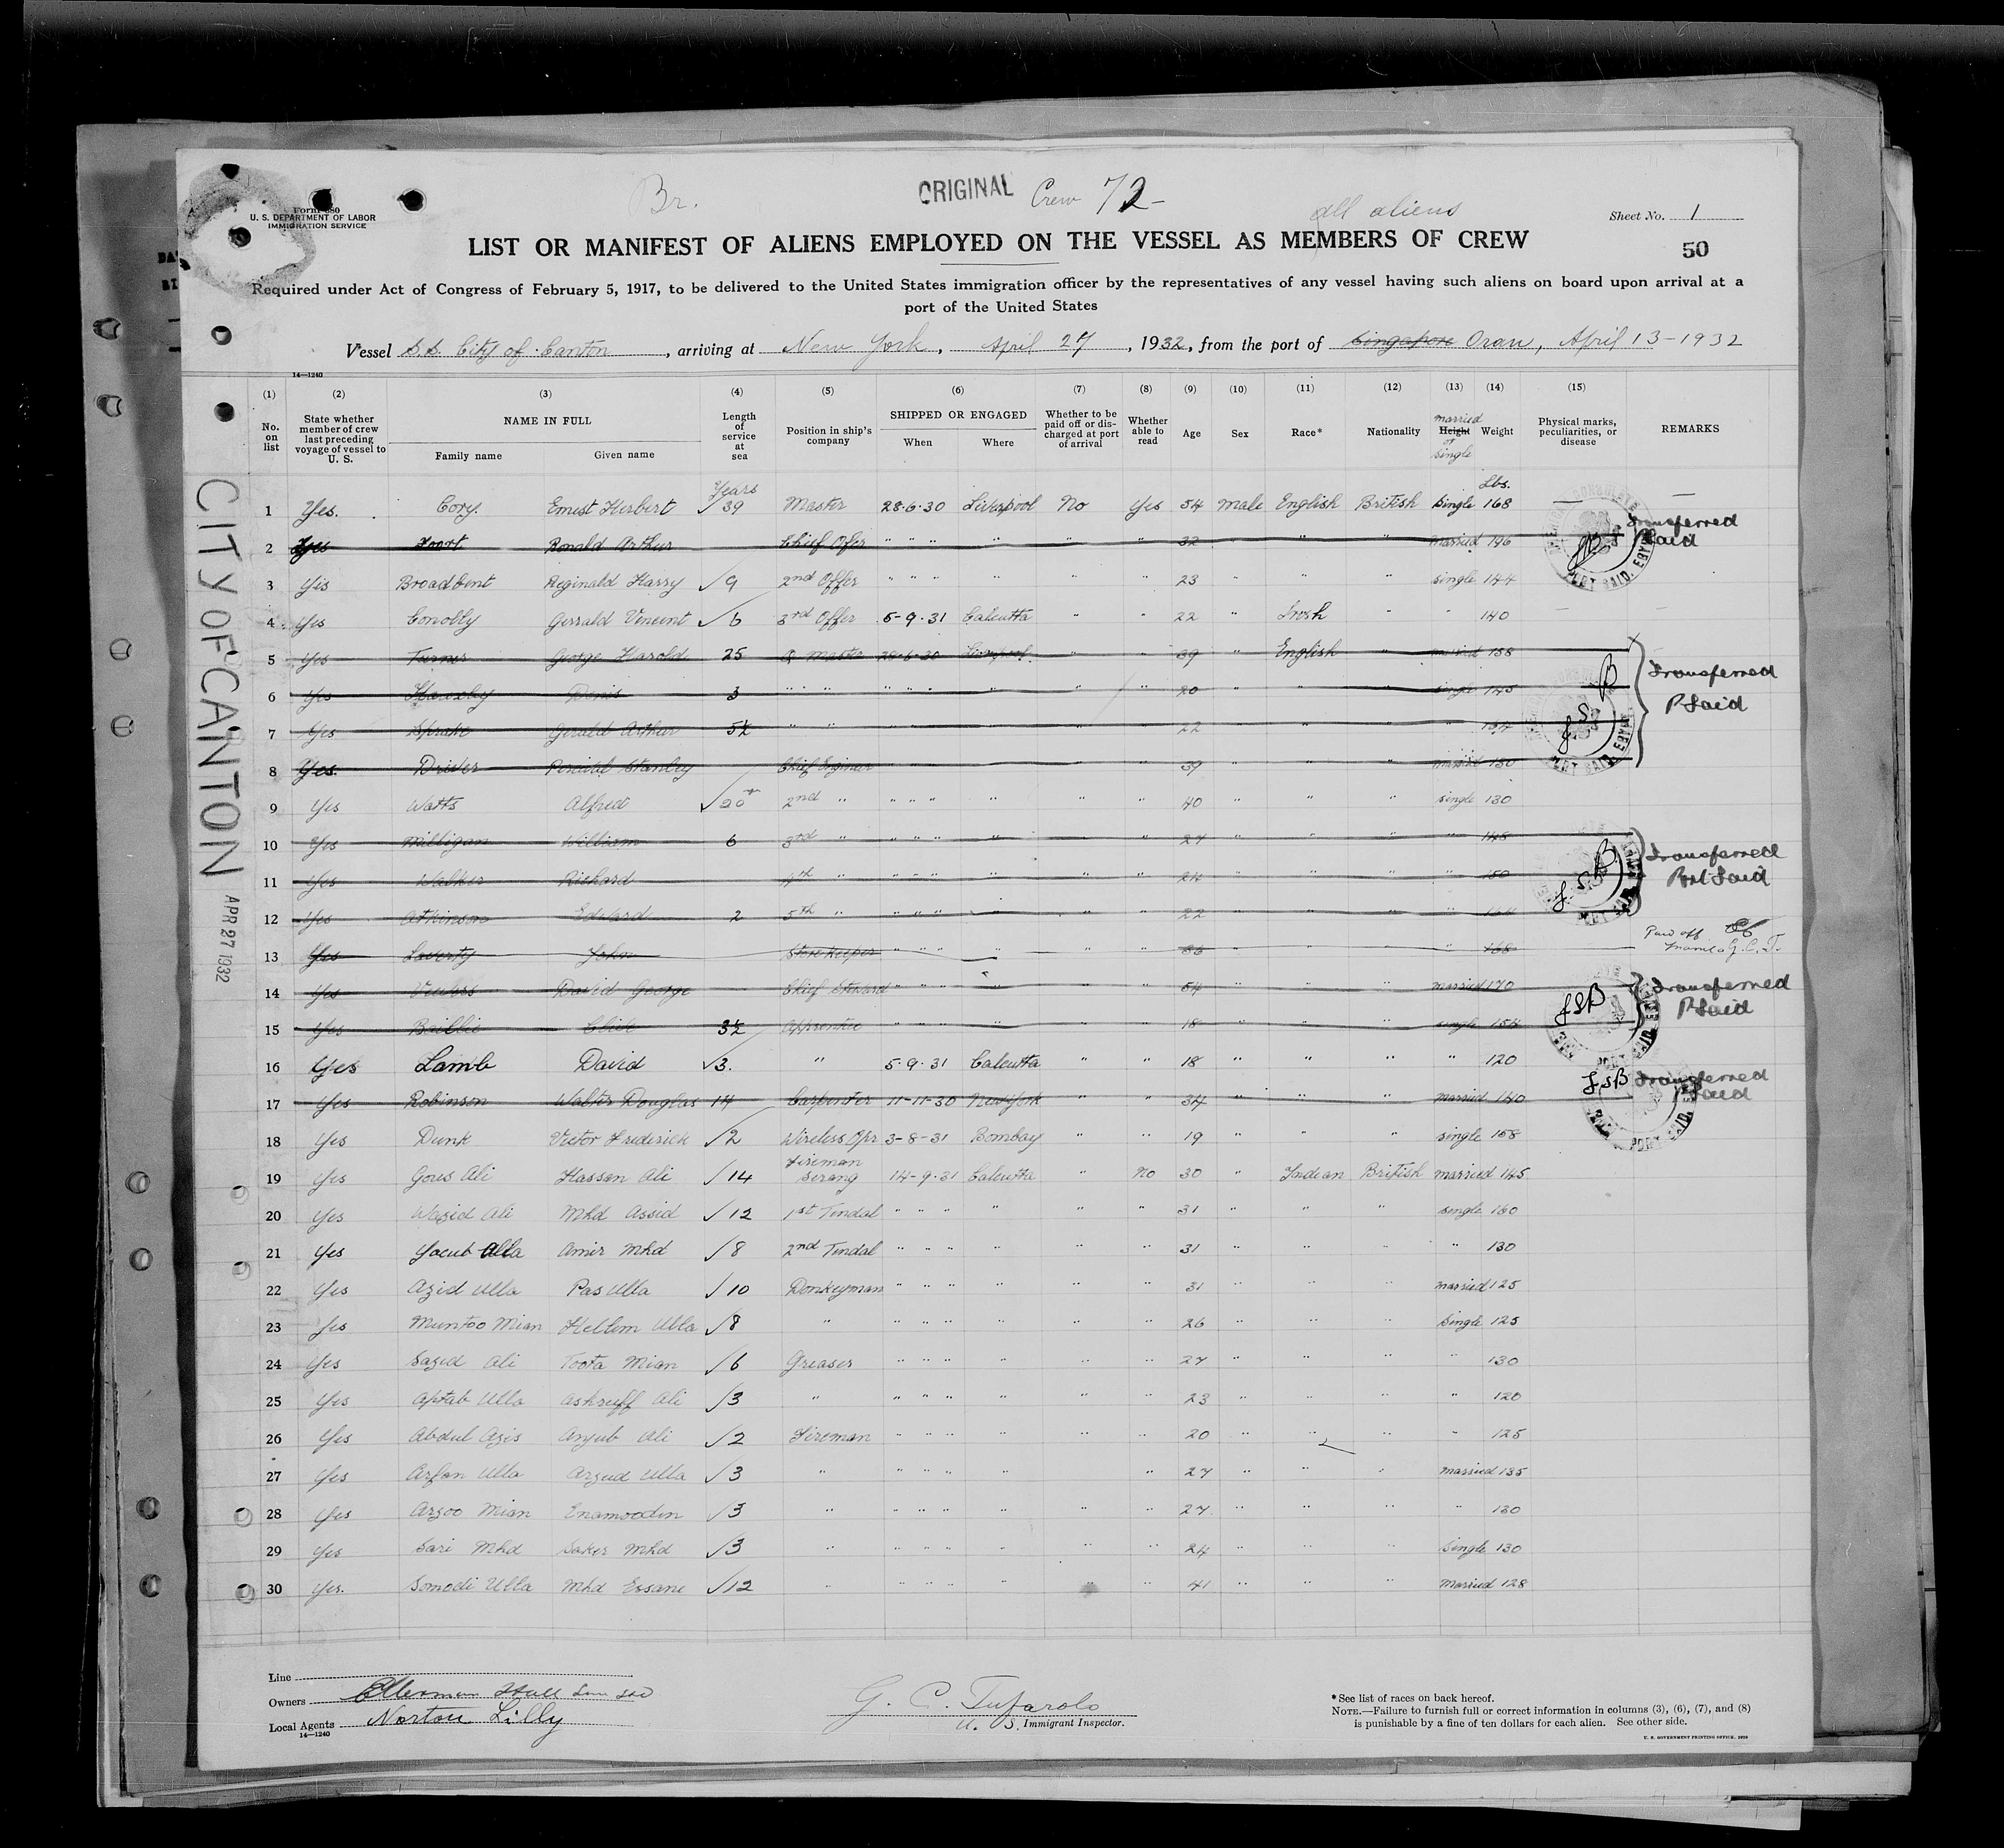 Br.
ORIGINAL Crew 72-
all aliens
Form 680
U. S. DEPARTMENT OF LABOR
IMMIGRATION SERVICE
Sheet No. 1
50
LIST OR MANIFEST OF ALIENS EMPLOYED ON THE VESSEL AS MEMBERS OF CREW
Required under Act of Congress of February 5, 1917, to be delivered to the United States immigration officer by the representatives of any vessel having such aliens on board upon arrival at a
port of the United States
Vessel S.S. City of Canton, arriving at New York, April 27, 1932, from the port of Singapore Oran, April 13-1932
14—1240
(1) (2) (3) (4) (5) (6) (7) (8) (9) (10) (11) (12) (13) (14) (15)
No. on list
State whether member of crew last preceding voyage of vessel to U. S.
NAME IN FULL
Family name Given name
Length of service at sea
Position in ship's company
SHIPPED OR ENGAGED
When Where
Whether to be paid off or discharged at port of arrival
Whether able to read
Age
Sex
Race*
Nationality
married Height or single
Weight
Physical marks, peculiarities, or disease
REMARKS
Years Lbs.
1 Yes. Cory. Ernest Herbert √ 39 Master 28-6-30 Liverpool No Yes 54 Male English British Single 168 — —
2 Yes Ronald Arthur Chief Offer " " " " " " 32 " " " married 146 Transferred P Said
3 Yes Broadbent Reginald Harry √ 9 2nd Offer " " " " " " 23 " " " single 144
4 Yes Conolly Gerrald Vincent √ 6 3rd Offer 5-9-31 Calcutta " " 22 " Irish " " 140
5 Yes Turner George Harold 25 Q Master 28-6-30 Liverpool " " 39 " English " married 158
6 Yes Denis 3 " " " " " " " " 20 " " " single 145 Transferred
7 Yes Gerald Arthur 5½ " " " " " " " " 22 " " " " 134 P Said
8 Yes. Driver Percival Stanley Chief Enginer " " " " " " 39 " " " married 150
9 Yes Watts Alfred √ 20 2nd " " " " " " " 40 " " " single 130
10 Yes Milligan William 6 3rd " " " " " " " 27 " " " " 145 Transferred
11 Yes Walker Richard 4th " " " " " " " 24 " " " " 150 Port Said
12 Yes Atkinson Edward 2 5th " " " " " " " 22 " " " "
13 Yes Laverty John Storekeeper " " " " " " 36 " " " " 168 Paid off Manila G.C.T.
14 Yes David George Chief Steward " " " " " " 54 " " " married 170 Transferred
15 Yes Baillie Clive 3½ Apprentice " " " " " " 18 " " " single 154 P Said
16 Yes Lamb David √3. " 5-9-31 Calcutta " " 18 " " " " 120
17 Yes Robinson Walter Douglas 14 Carpenter 11-11-30 New York " " 34 " " " married 140 Transferred P Said
18 Yes Dunk Victor Frederick √2 Wireless Opr 3-8-31 Bombay " " 19 " " " single 158
19 Yes Gous Ali Hassan Ali √ 14 Fireman Serang 14-9-31 Calcutta " No 30 " Indian British married 145
20 Yes Wazid Ali Mhd Assid √ 12 1st Tindal " " " " " " 31 " " " single 160
21 Yes Yacub Alla Amir Mhd √ 8 2nd Tindal " " " " " " 31 " " " " 130
22 Yes Azid Ulla Pas Ulla √ 10 Donkeyman " " " " " " 31 " " " married 125
23 Yes Muntoo Mian Hellem Ulla √8 " " " " " " " 26 " " " Single 125
24 Yes Sazid Ali Toota Mian √6 Greaser " " " " " " 27 " " " " 130
25 Yes Aptab Ulla Ashruff Ali √3 " " " " " " " 23 " " " " 120
26 Yes Abdul Azis Anjub Ali √2 Fireman " " " " " " 20 " " " " 125
27 Yes Arfan Ulla Arzud Ulla √3 " " " " " " 27 " " " married 135
28 Yes Arzoo Mian Enamoodin √3 " " " " " " " 27 " " " " 130
29 Yes Sari Mhd Saker Mhd √3 " " " " " " " 24 " " " Single 130
30 Yes. Somodi Ulla Mhd Essane √12 " " " " " " " 41 " " " married 128
CITY OF CANTON APR 27 1932
AMERICAN CONSULATE PORT SAID, EGYPT
JSB
JSB
JSB
JSB
Line
Owners Ellerman Hall Line Ltd
Local Agents Norton Lilly
14—1240
G. C. Tufarolo
U. S. Immigrant Inspector.
*See list of races on back hereof.
NOTE.—Failure to furnish full or correct information in columns (3), (6), (7), and (8)
is punishable by a fine of ten dollars for each alien. See other side.
U. S. GOVERNMENT PRINTING OFFICE